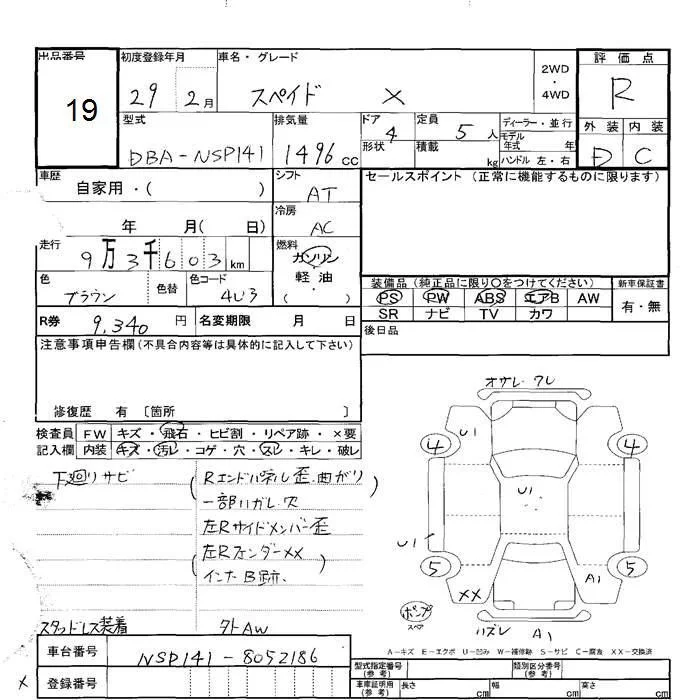 出品番号 初度登録年月 車名・グレード 評価点
19
29 2月 スペイド X 2WD・4WD R
型式 排気量 ドア 定員 ディーラー・並行 外装 内装
DBA-NSP141 1496cc 4 5人 モデル年式 年 D C
形状 積載 kg ハンドル 左・右
車歴 シフト セールスポイント (正常に機能するものに限ります)
自家用・( ) AT
冷房
年 月( 日) AC
走行 燃料
9万3千603km ガソリン
軽油
色 色替 色コード ( ・ )
ブラウン 4U3
装備品(純正品に限り○をつけてください) 新車保証書
PS PW ABS エアB AW 有・無
SR ナビ TV カワ
R券 9,340円 名変期限 月 日
後日品
注意事項申告欄(不具合内容等は具体的に記入して下さい)
修復歴 有 〔箇所 〕
検査員 FW キズ・飛石・ヒビ割・リペア跡・×要
記入欄 内装 キズ・汚レ・コゲ・穴・スレ・キレ・破レ
下廻りサビ
(Rエンドパネル歪.曲がり)
一部ハガレ.穴
左Rサイドメンバー歪
(左RフェンダーXX
インナB跡.)
スタッドレス装着 タトAW
オサレ.ワレ
U1
4 4
U1
U1
5 5
XX A1
ポンプ
スペア
ハズレ A1
A-キズ E-エクボ U-凹み W-補修跡 S-サビ C-腐食 XX-交換済
車台番号 NSP141-8052186
X 登録番号
型式指定番号(参考) 類別区分番号(参考)
車庫証明用(参考) 長さ cm 幅 cm 高さ cm